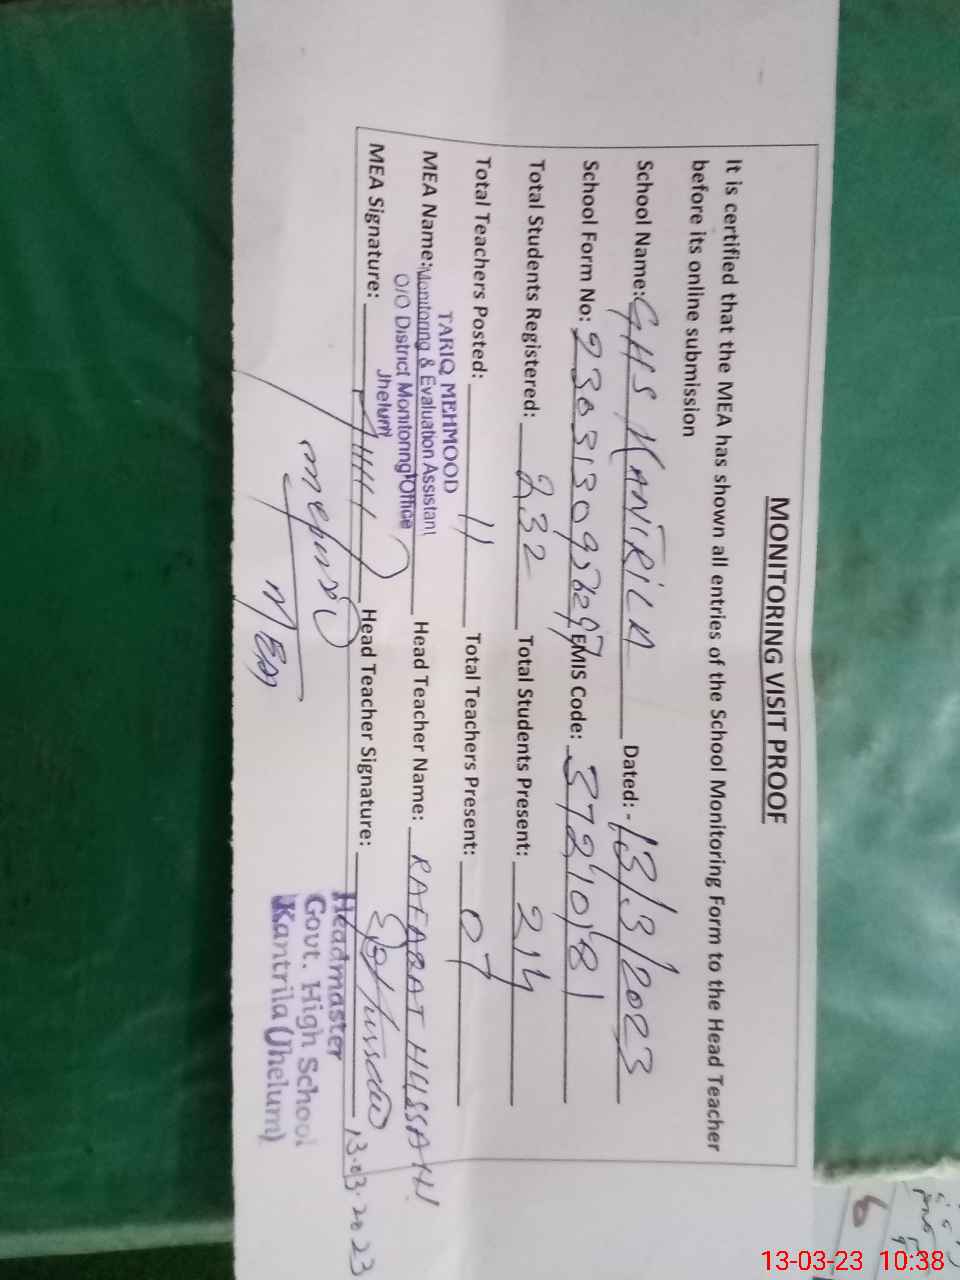 MONITORING VISIT PROOF
It is certified that the MEA has shown all entries of the School Monitoring Form to the Head Teacher
before its online submission
School Name: GHS KANTRILA Dated: - 13/3/2023
School Form No: EMIS Code: 37210181
Total Students Registered: 232 Total Students Present: 214
Total Teachers Posted: 11 Total Teachers Present: 07
TARIQ MEHMOOD
MEA Name: Monitoring & Evaluation Assistant Head Teacher Name: RAFAQAT HUSSAIN
O/O District Monitoring Office
Jhelum
MEA Signature: Head Teacher Signature:
13.03.2023
Headmaster
Govt. High School
Kantrila (Jhelum)
MEA
6
13-03-23 10:38